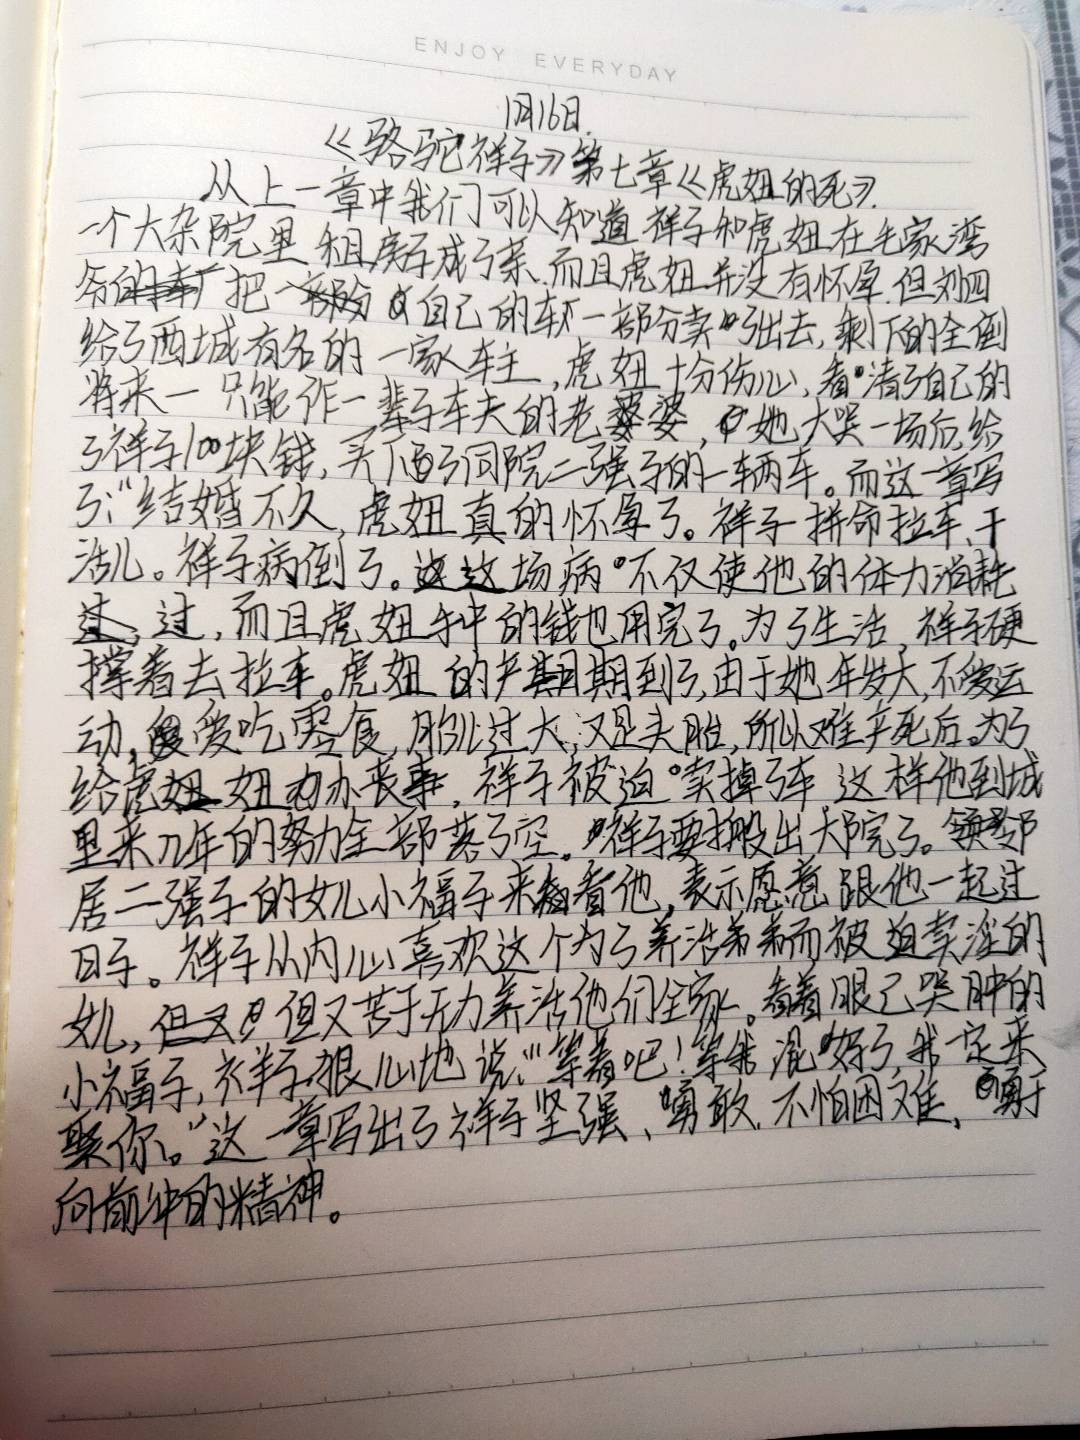 ENJOY EVERYDAY
1月16日.
《骆驼祥子》第七章《虎妞的死》.
从上一章中我们可以知道祥子和虎妞在毛家湾
一个大杂院里租房子成了亲.而且虎妞并没有怀孕.但刘四
爷把自己的车厂一部分卖了出去,剩下的全倒
给了西城有名的一家车主,虎妞十分伤心,看清了自己的
将来一只能作一辈子车夫的老婆,她大哭一场后,给
了祥子100块钱,买下了同院二强子的一辆车。而这一章写
了:“结婚不久,虎妞真的怀孕了。祥子拼命拉车、干
活儿。祥子病倒了。这场病不仅使他的体力消耗
过,过,而且虎妞手中的钱也用完了。为了生活,祥子硬
撑着去拉车。虎妞的产期到了,由于她年岁大,不爱运
动,爱吃零食,胎儿过大,又是头胎,所以难产死后。为了
给虎妞办丧事,祥子被迫卖掉了车.这样他到城
里来几年的努力全部落了空。祥子要搬出大院了。邻
居二强子的女儿小福子来看他,表示愿意跟他一起过
日子。祥子从内心喜欢这个为了养活弟弟而被迫卖淫的
女儿,但又苦于无力养活他们全家。看着眼已哭肿的
小福子,祥子狠心地说:“等着吧!等我混好了,我一定来
娶你。”这一章写出了祥子坚强、勇敢.不怕困难、勇于
向前冲的精神。